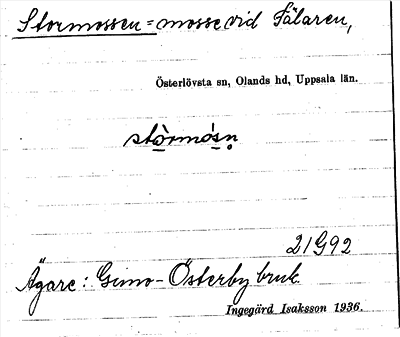 Stormossen = mosse vid Fälaren,
Österlövsta sn, Olands hd, Uppsala län.
stòrmósn̥
21G92
Ägare: Gimo-Österby bruk.
Ingegärd Isaksson 1936.